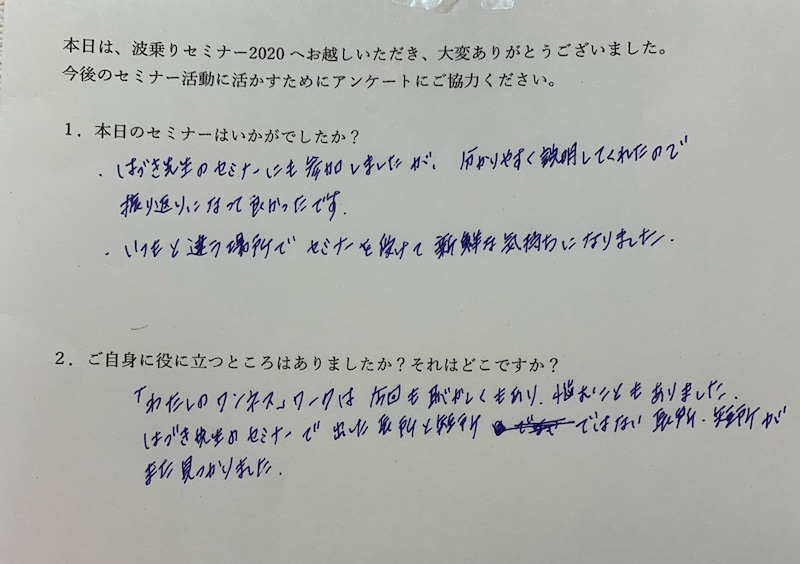 本日は、波乗りセミナー2020へお越しいただき、大変ありがとうございました。
今後のセミナー活動に活かすためにアンケートにご協力ください。
1. 本日のセミナーはいかがでしたか？
・はづき先生のセミナーにも参加しましたが、分かりやすく説明してくれたので
振り返りになって良かったです.
・いつもと違う場所でセミナーを受けて新鮮な気持ちになりました.
2. ご自身に役に立つところはありましたか？それはどこですか？
「わたしのワンネス」ワークは 今回も恥ずかしくもあり、悩むこともありました.
はづき先生のセミナーで出した長所と短所 ではない長所、短所が
また見つかりました.